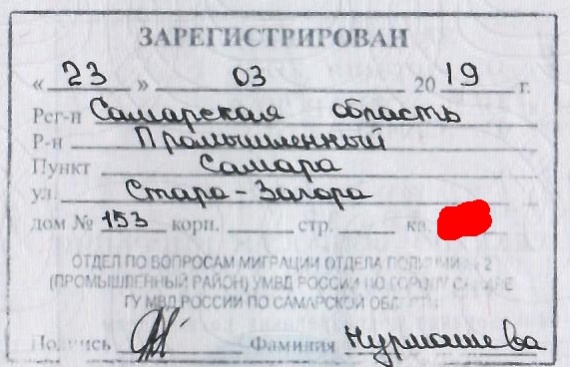 ЗАРЕГИСТРИРОВАН
« 23 » 03 2019 г.
Рег-н Самарская область
Р-н Промышленный
Пункт Самара
ул. Стара-Загора
дом № 153 корп. стр. кв.
ОТДЕЛ ПО ВОПРОСАМ МИГРАЦИИ ОТДЕЛА ПОЛИЦИИ № 2
(ПРОМЫШЛЕННЫЙ РАЙОН) УМВД РОССИИ ПО ГОРОДУ САМАРЕ
ГУ МВД РОССИИ ПО САМАРСКОЙ ОБЛАСТИ
Подпись Фамилия Нурмашева